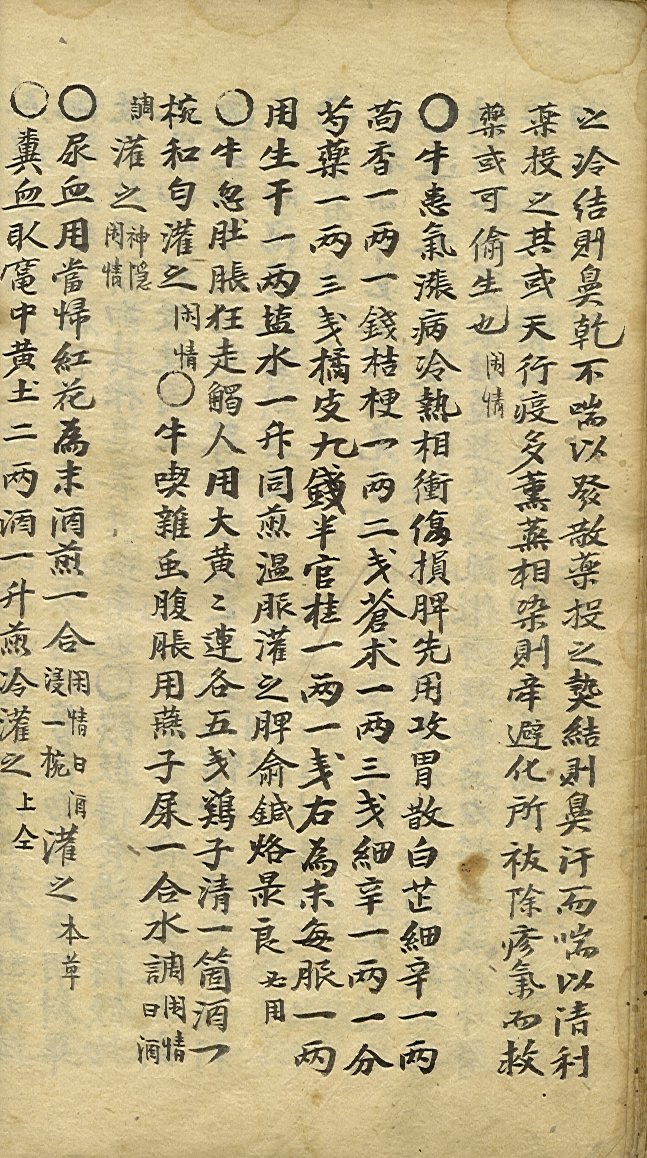 之冷結則鼻乾不喘以發散藥投之熱結則鼻汗而喘以清利
藥投之其或天行疫多薰蒸相染則牽避化所祓除疹氣而救
藥或可偷生也閑情
○牛患氣漲病冷熱相衝傷損脾先用攻胃散白芷細辛一兩
茴香一兩一錢桔梗一兩二戋蒼术一兩三戋細辛一兩一分
芍藥一兩三戋橘皮九錢半官桂一兩一戋右為末每服一兩
用生干一兩盐水一升同煎温服灌之脾俞鍼烙㝡良必用
○牛忽肚脹狂走觸人用大黃〻連各五戋鷄子清一箇酒一
椀和勻灌之閑情○牛喫雜虫腹脹用燕子屎一合水調閑情曰酒
調灌之神隱閑情
○尿血用當帰紅花為末酒煎一合閑情曰酒浸一椀灌之本草
○糞血臥竃中黄土二两酒一升煎冷灌之上仝